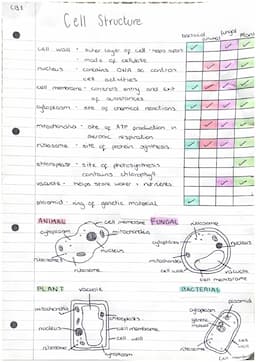 CB1
Cell Structure
bacterial animal fungal plant
cell wall - outer layer of cell - helps support
- made of cellulose
nucleus - contains DNA so controls
cell activities
cell membrane - controls entry and exit
of substances
cytoplasm - site of chemical reactions
mitochondria - site of ATP production in
aerobic respiration
ribosome - site of protein synthesis
chloroplast - site of photosynthesis
contains chlorophyll
vacuole - helps store water + nutrients
plasmid - ring of genetic material
ANIMAL
cell membrane
cytoplasm
mitochondria
nucleus
ribosome
FUNGAL
ribosome
cytoplasm
nucleus
mitochondria
cell wall
vacuole
cell membrane
PLANT
vacuole
mitochondria
chloroplasts
nucleus
cell membrane
cell wall
ribosome
cytoplasm
BACTERIAL
plasmid
cytoplasm
cell wall
ribosome